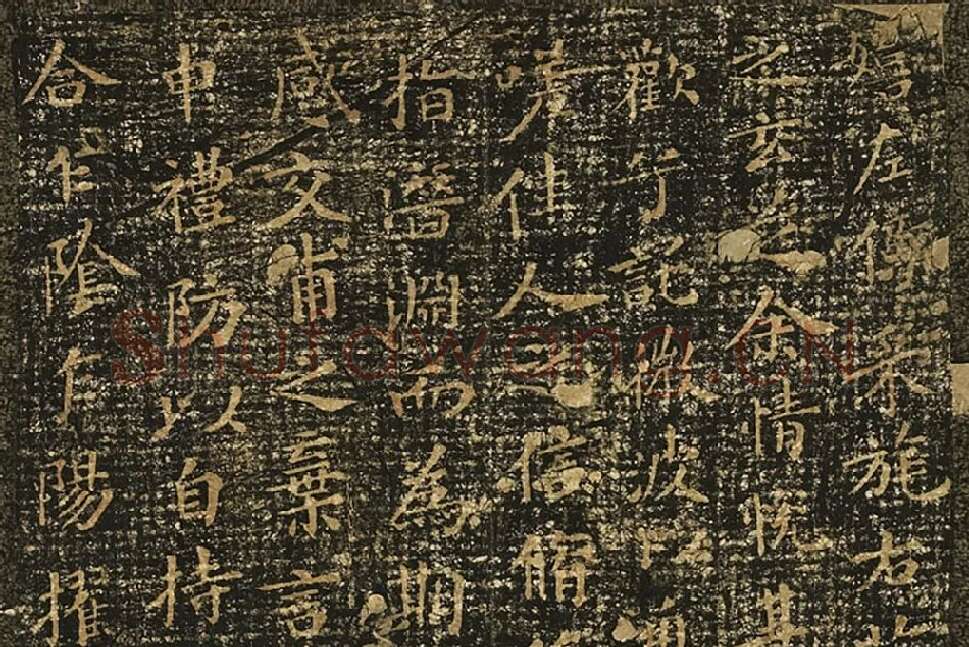 嬉左倚采旄右
玄芝余情悅其
歡兮託微波以
嗟佳人之信脩
指潛淵而為期
感交甫之棄言
申禮防以自持
合乍陰乍陽擢
Shufawang.CN